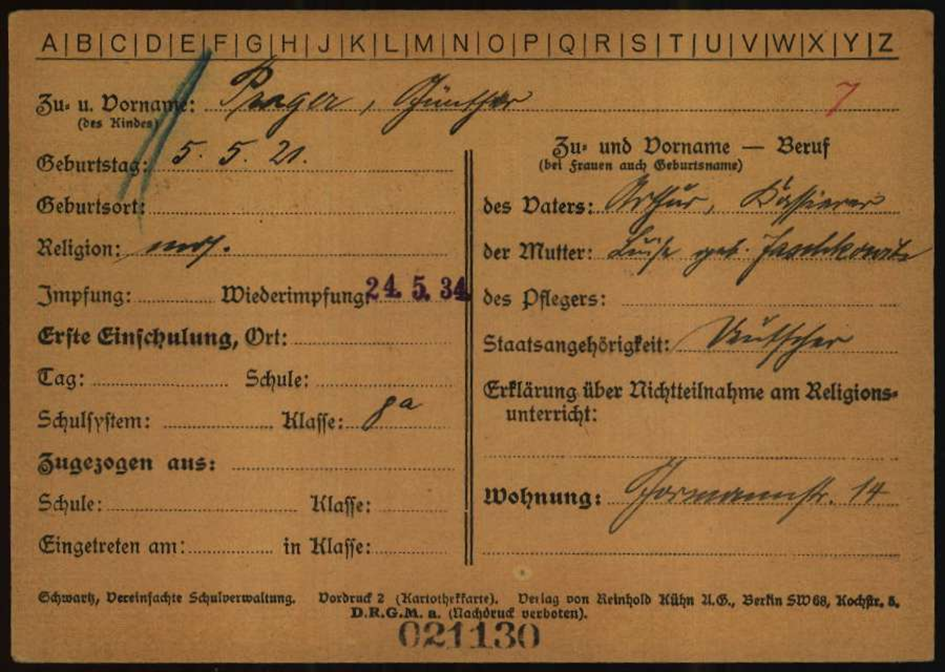 A|B|C|D|E|F|G|H|J|K|L|M|N|O|P|Q|R|S|T|U|V|W|X|Y|Z
Zu- u. Vorname: Prager, Günther 7
(des Kindes)
Geburtstag: 5. 5. 21.
Geburtsort:
Religion: mos.
Impfung: Wiederimpfung: 24. 5. 34
Erste Einschulung, Ort:
Tag: Schule:
Schulsystem: Klasse: 8a
Zugezogen aus:
Schule: Klasse:
Eingetreten am: in Klasse:
Zu- und Vorname — Beruf
(bei Frauen auch Geburtsname)
des Vaters: Arthur, Kassierer
der Mutter: Luise geb.
des Pflegers:
Staatsangehörigkeit: Deutscher
Erklärung über Nichtteilnahme am Religions-
unterricht:
Wohnung: Gormannstr. 14
Schwartz, Vereinfachte Schulverwaltung. Vordruck 2 (Kartothekkarte). Verlag von Reinhold Kühn A.G., Berlin SW68, Kochstr. 5.
D.R.G.M. a. (Nachdruck verboten).
021130